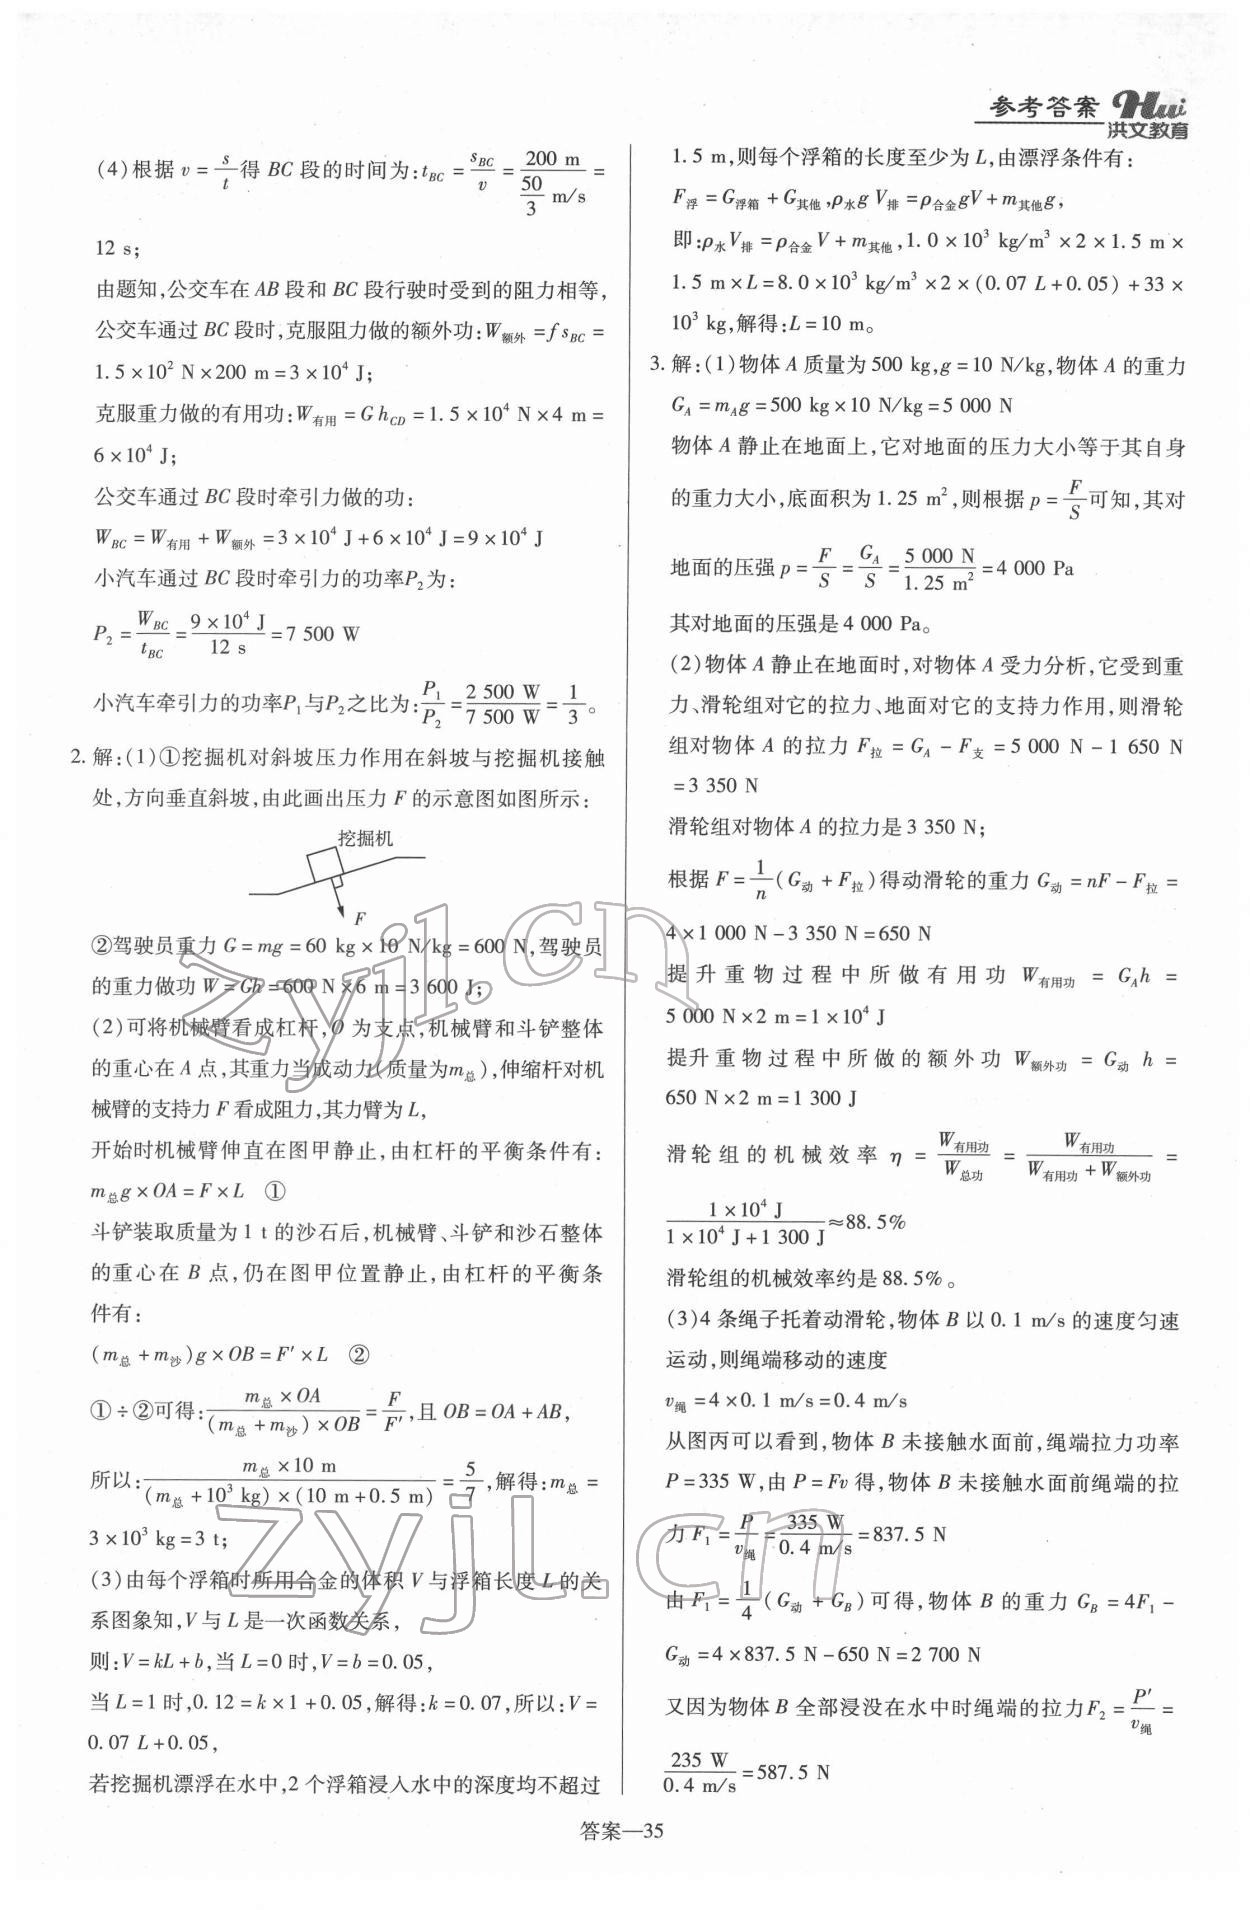 参考答案 Hwi
洪文教育
(4)根据 v = s/t 得 BC 段的时间为:t_BC = s_BC/v = 200 m/(50/3 m/s) =
12 s;
由题知,公交车在 AB 段和 BC 段行驶时受到的阻力相等,
公交车通过 BC 段时,克服阻力做的额外功:W额外 = fs_BC =
1.5×10² N×200 m=3×10⁴ J;
克服重力做的有用功:W有用 = Gh_CD = 1.5×10⁴ N×4 m =
6×10⁴ J;
公交车通过 BC 段时牵引力做的功:
W_BC = W有用 + W额外 = 3×10⁴ J+6×10⁴ J=9×10⁴ J
小汽车通过 BC 段时牵引力的功率P₂为:
P₂ = W_BC/t_BC = 9×10⁴ J/12 s = 7 500 W
小汽车牵引力的功率P₁与P₂之比为:P₁/P₂ = 2 500 W/7 500 W = 1/3。
2. 解:(1)①挖掘机对斜坡压力作用在斜坡与挖掘机接触
处,方向垂直斜坡,由此画出压力 F 的示意图如图所示:
挖掘机
F
②驾驶员重力 G=mg=60 kg×10 N/kg=600 N,驾驶员
的重力做功 W=Gh=600 N×6 m=3 600 J;
(2)可将机械臂看成杠杆,O 为支点,机械臂和斗铲整体
的重心在 A 点,其重力当成动力(质量为m总),伸缩杆对机
械臂的支持力 F 看成阻力,其力臂为 L,
开始时机械臂伸直在图甲静止,由杠杆的平衡条件有:
m总g×OA=F×L ①
斗铲装取质量为 1 t 的沙石后,机械臂、斗铲和沙石整体
的重心在 B 点,仍在图甲位置静止,由杠杆的平衡条
件有:
(m总+m沙)g×OB=F′×L ②
①÷②可得:m总×OA/((m总+m沙)×OB) = F/F′,且 OB=OA+AB,
所以:m总×10 m/((m总+10³ kg)×(10 m+0.5 m)) = 5/7,解得:m总 =
3×10³ kg=3 t;
(3)由每个浮箱时所用合金的体积 V 与浮箱长度 L 的关
系图象知,V 与 L 是一次函数关系,
则:V=kL+b,当 L=0 时,V=b=0.05,
当 L=1 时,0.12=k×1+0.05,解得:k=0.07,所以:V=
0.07 L+0.05,
若挖掘机漂浮在水中,2 个浮箱浸入水中的深度均不超过
1.5 m,则每个浮箱的长度至少为 L,由漂浮条件有:
F浮 = G浮箱 + G其他,ρ水g V排 = ρ合金gV+m其他g,
即:ρ水V排 = ρ合金V+m其他,1.0×10³ kg/m³×2×1.5 m×
1.5 m×L=8.0×10³ kg/m³×2×(0.07 L+0.05)+33×
10³ kg,解得:L=10 m。
3. 解:(1)物体 A 质量为 500 kg,g=10 N/kg,物体 A 的重力
G_A = m_Ag=500 kg×10 N/kg=5 000 N
物体 A 静止在地面上,它对地面的压力大小等于其自身
的重力大小,底面积为 1.25 m²,则根据 p = F/S 可知,其对
地面的压强 p = F/S = G_A/S = 5 000 N/1.25 m² = 4 000 Pa
其对地面的压强是 4 000 Pa。
(2)物体 A 静止在地面时,对物体 A 受力分析,它受到重
力、滑轮组对它的拉力、地面对它的支持力作用,则滑轮
组对物体 A 的拉力 F拉 = G_A - F支 = 5 000 N - 1 650 N
=3 350 N
滑轮组对物体 A 的拉力是 3 350 N;
根据 F = 1/n (G动 + F拉)得动滑轮的重力 G动 = nF - F拉 =
4×1 000 N-3 350 N=650 N
提升重物过程中所做有用功 W有用功 = G_Ah =
5 000 N×2 m=1×10⁴ J
提升重物过程中所做的额外功 W额外功 = G动 h =
650 N×2 m=1 300 J
滑轮组的机械效率 η = W有用功/W总功 = W有用功/(W有用功 + W额外功) =
1×10⁴ J/(1×10⁴ J+1 300 J) ≈88.5%
滑轮组的机械效率约是 88.5%。
(3)4 条绳子托着动滑轮,物体 B 以 0.1 m/s 的速度匀速
运动,则绳端移动的速度
v绳 = 4×0.1 m/s=0.4 m/s
从图丙可以看到,物体 B 未接触水面前,绳端拉力功率
P=335 W,由 P=Fv 得,物体 B 未接触水面前绳端的拉
力 F₁ = P/v绳 = 335 W/0.4 m/s = 837.5 N
由 F₁ = 1/4 (G动 + G_B)可得,物体 B 的重力 G_B = 4F₁ -
G动 = 4×837.5 N-650 N=2 700 N
又因为物体 B 全部浸没在水中时绳端的拉力F₂ = P′/v绳 =
235 W/0.4 m/s = 587.5 N
zyjl.cn
zyjl.cn
答案—35